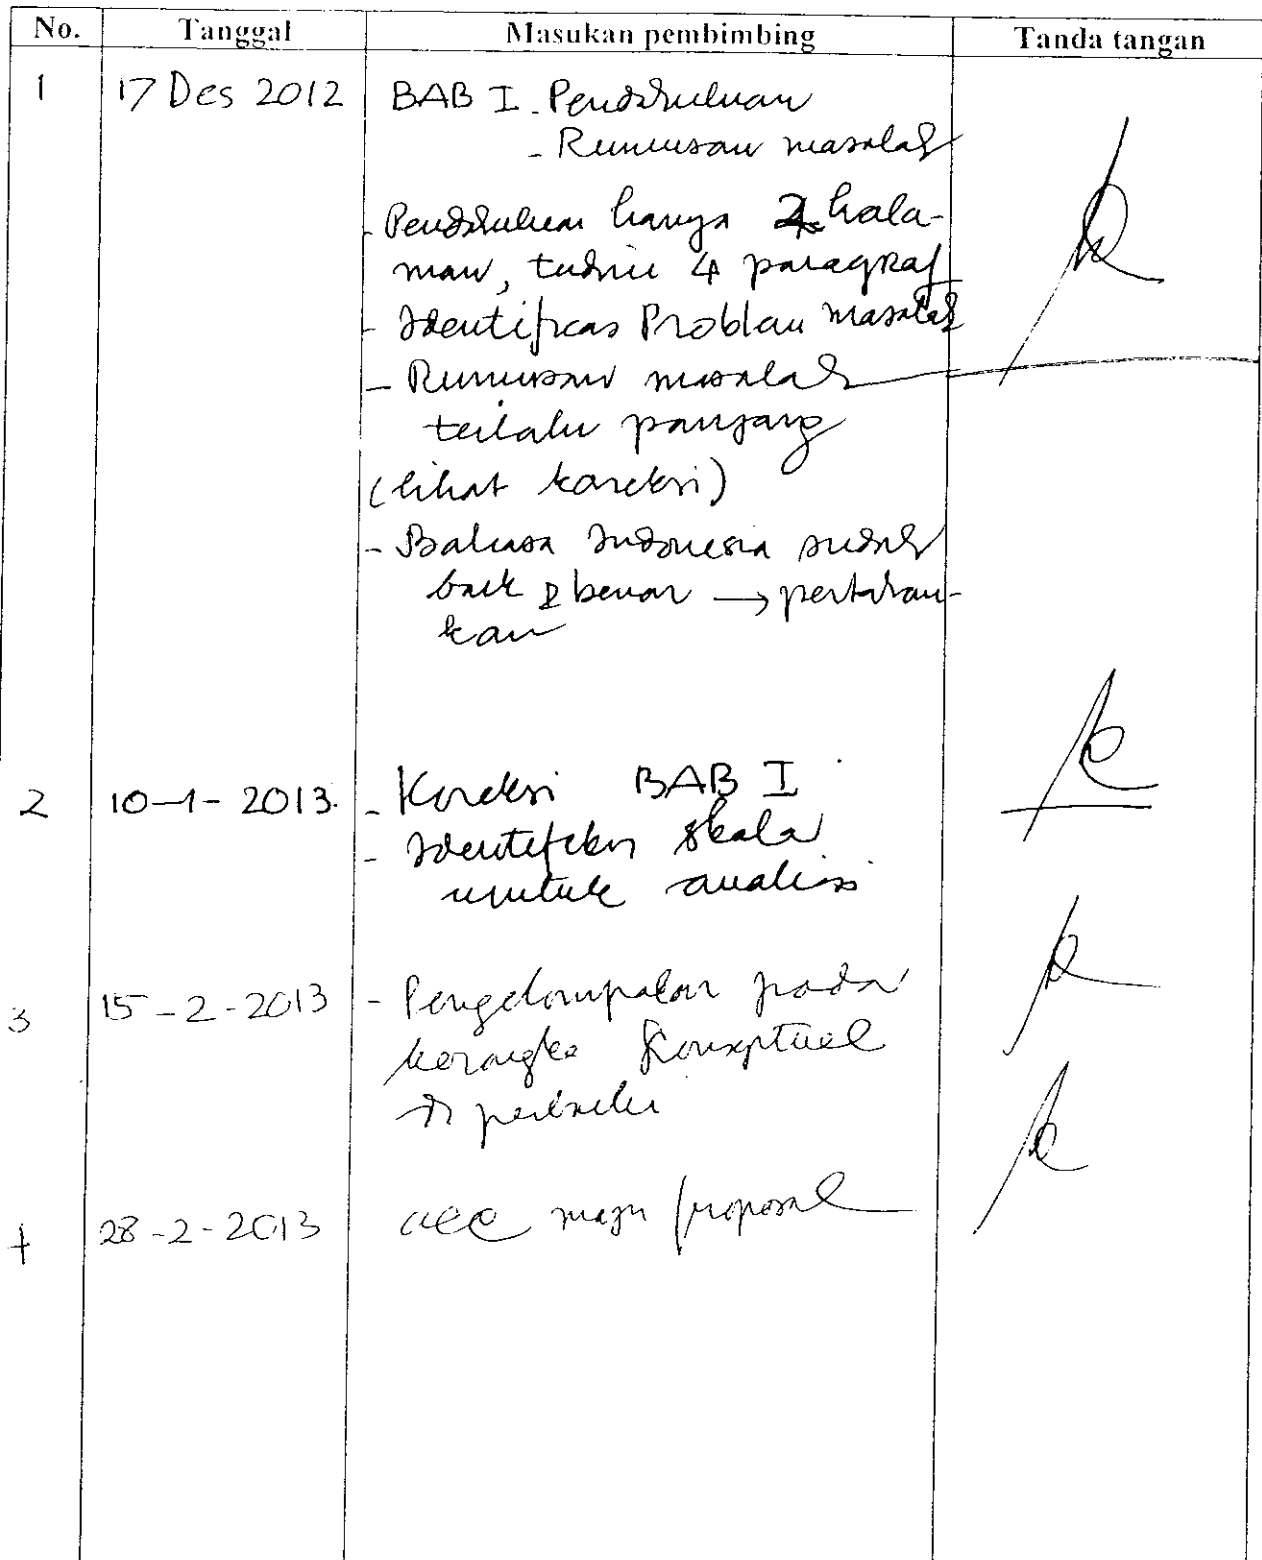 No. Tanggal Masukan pembimbing Tanda tangan
1 17 Des 2012 BAB I - Pendahuluan
- Rumusan masalah
- Pendahuluan hanya 2 hala-
man, terdiri 4 paragraf
- Identifikas Problem masalah
- Rumusan masalah
terlalu panjang
(lihat koreksi)
- Bahasa Indonesia sudah
baik & benar → pertahan-
kan
2 10-1-2013. - Koreksi BAB I
- Identifikasi skala
untuk analisis
3 15-2-2013 - Pengelompokan pada
kerangka konseptual
di perbaiki
4 28-2-2013 acc maju proposal